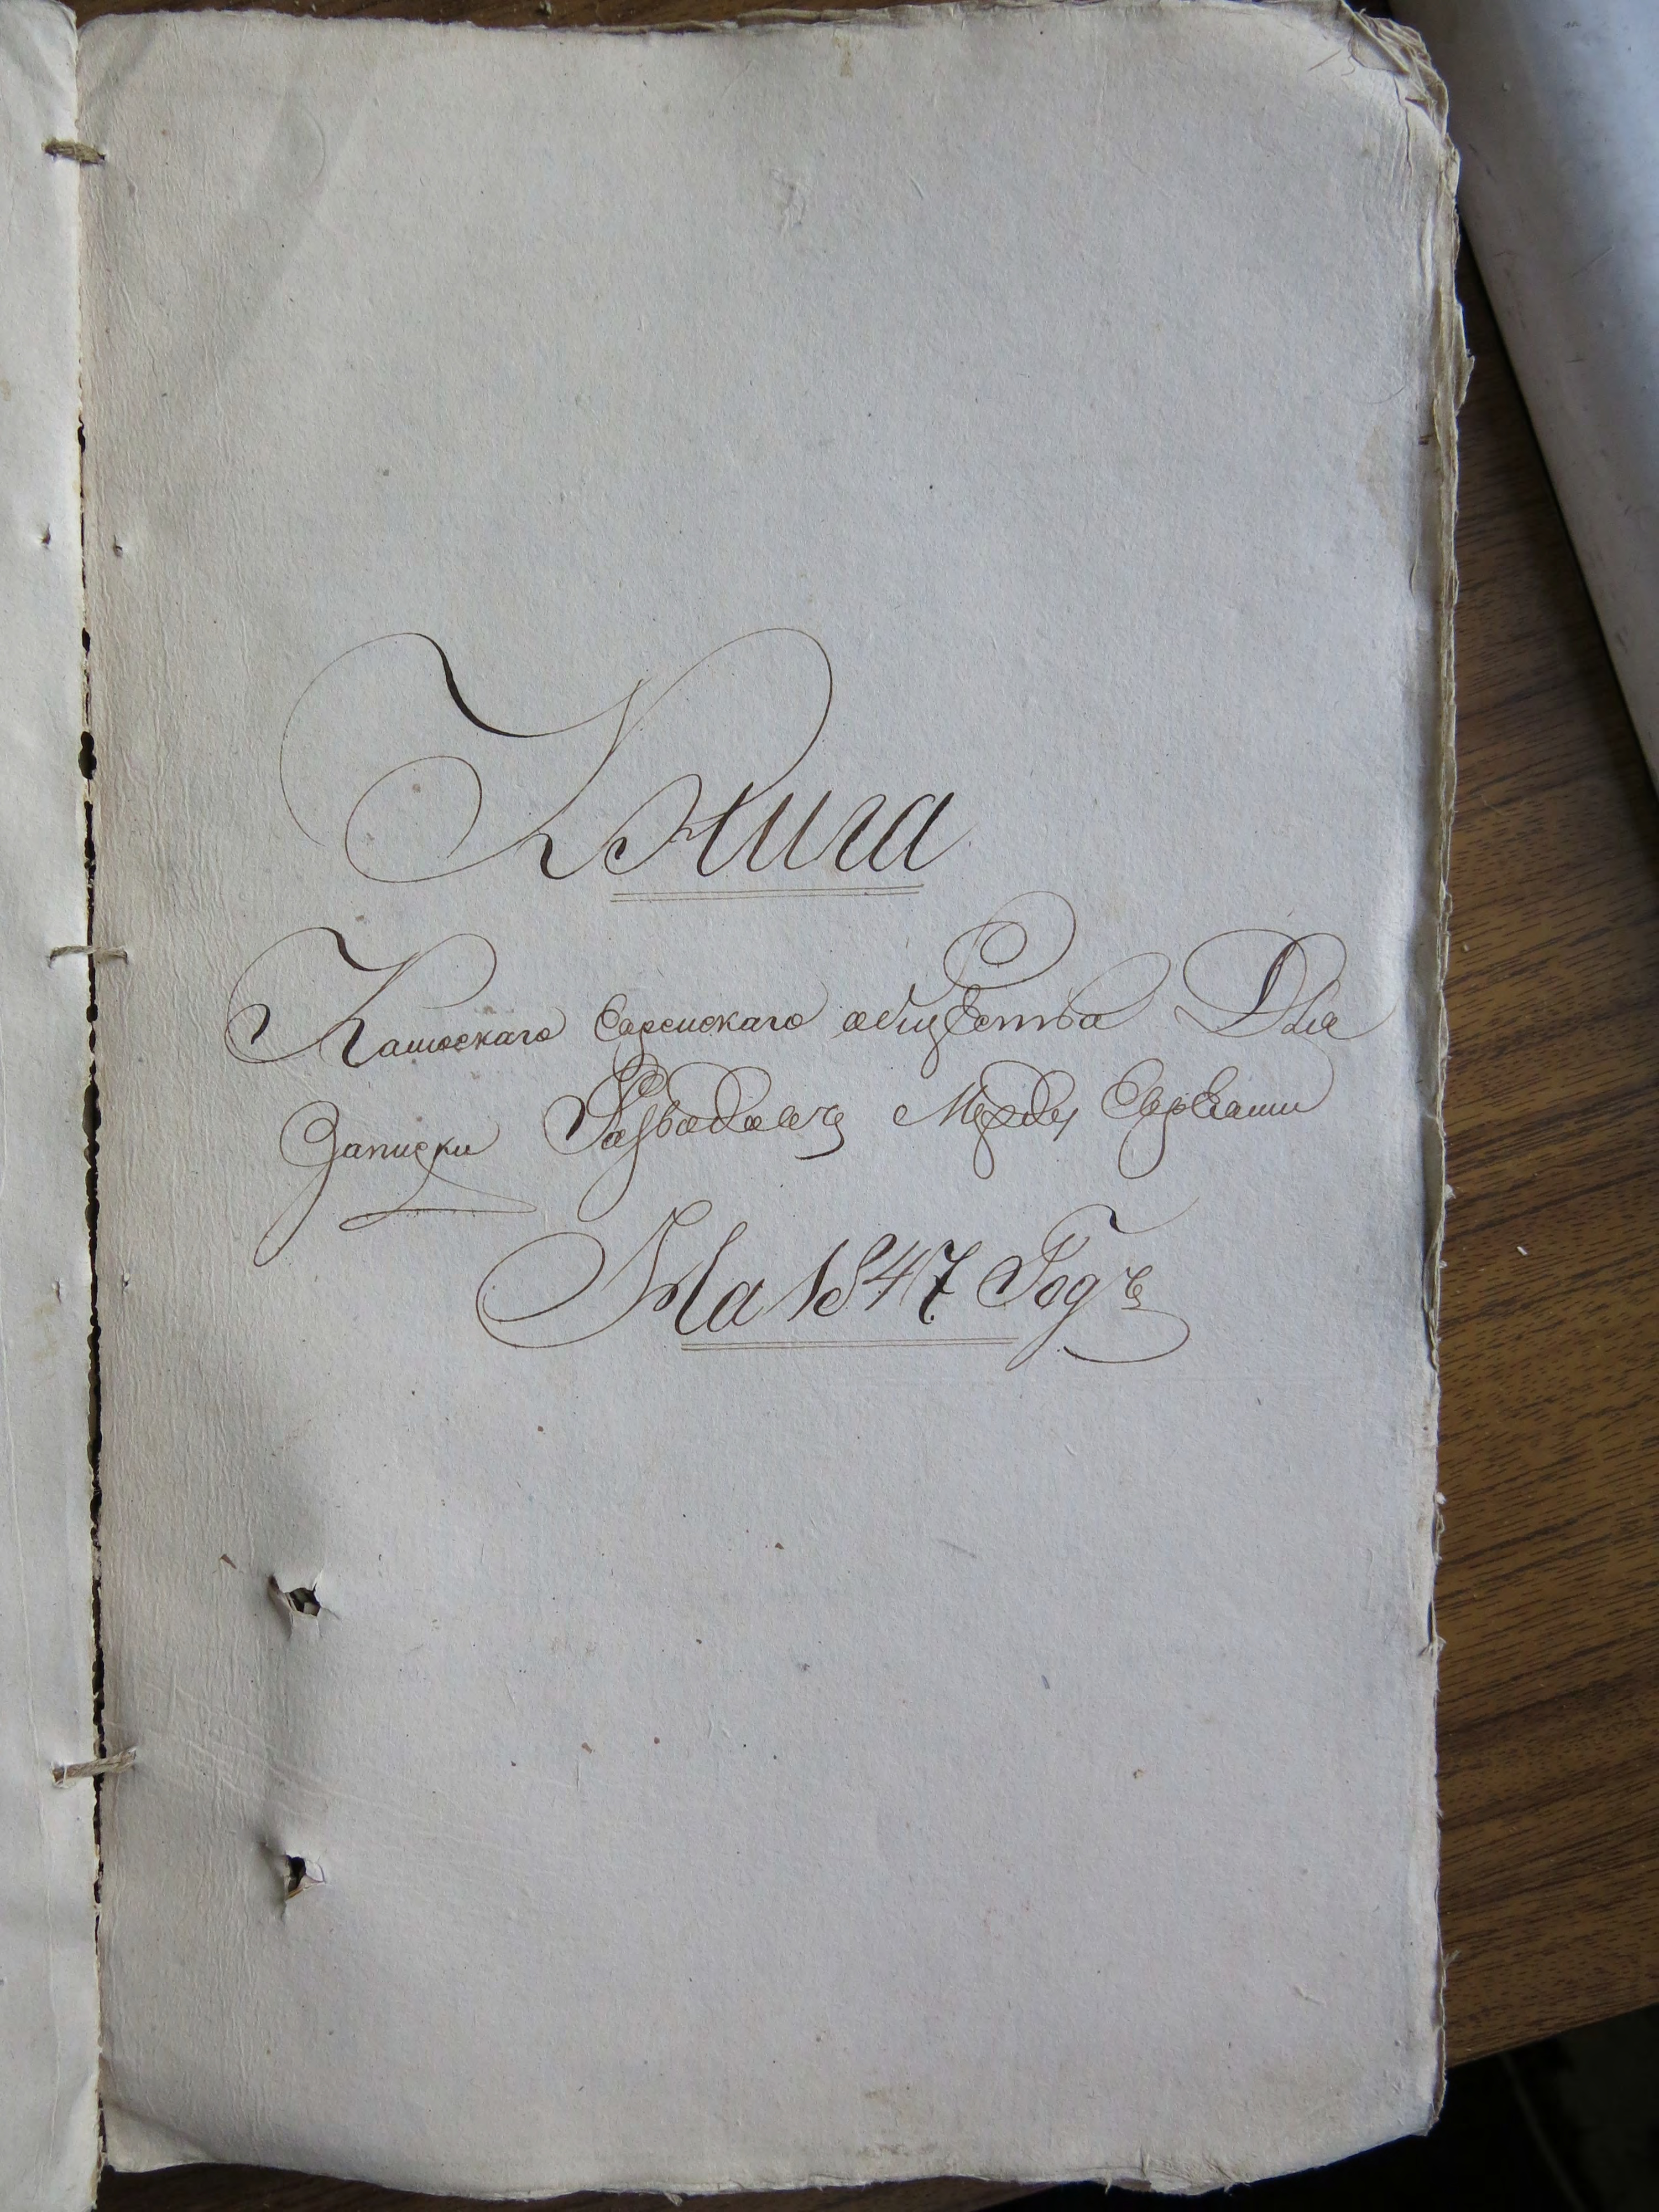 Книга
Кашоскаго Еврейскаго общества Для
Записки Разводовъ Между Евреями
На 1847 Годъ